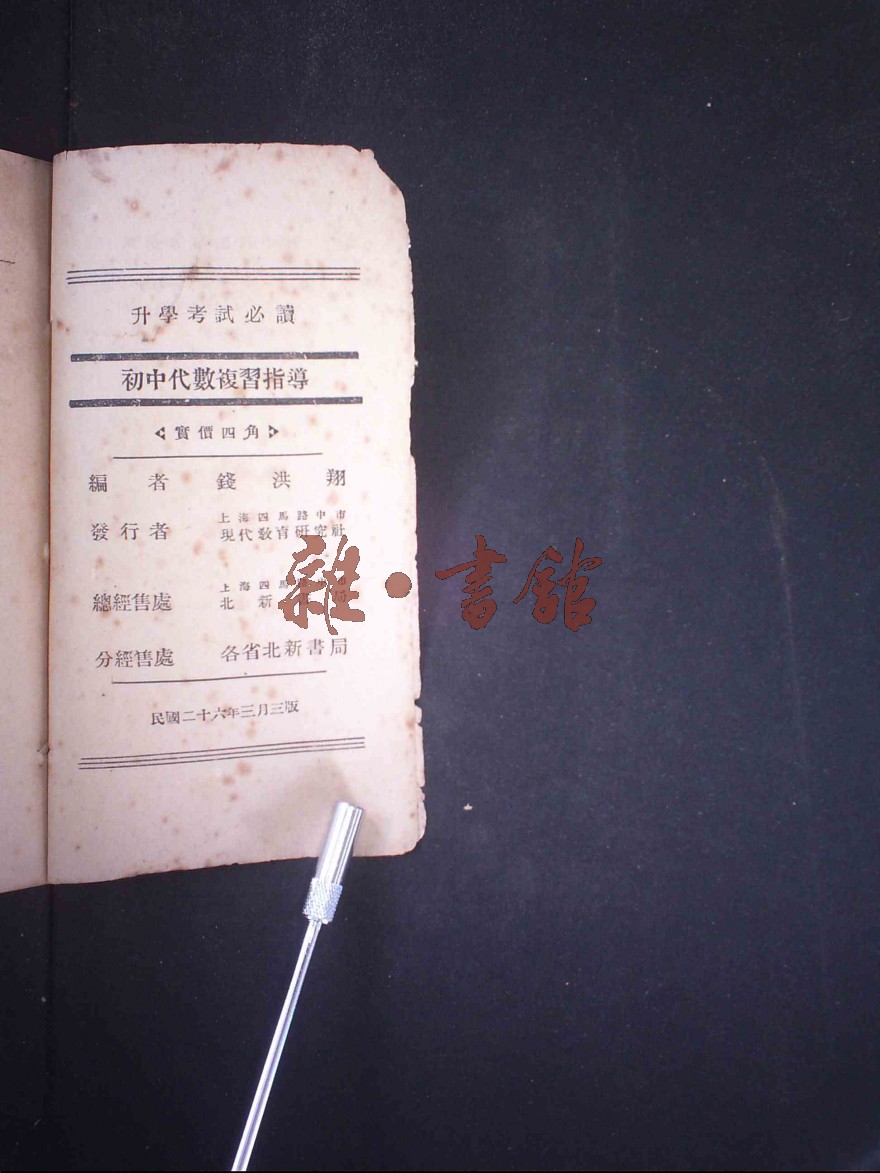 升學考試必讀
初中代數複習指導
實價四角
編者 錢洪翔
發行者 上海四馬路中市
現代教育研究社
總經售處 上海四馬
北新
局
分經售處 各省北新書局
民國二十六年三月三版
雜·書館